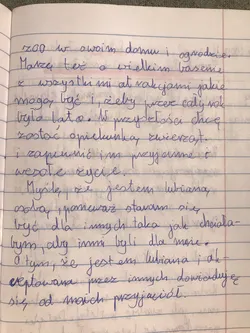 zoo w swoim domu i ogrodzie.
Marzę też o wielkim basenie
z wszystkimi atrakcjami jakie
mogą być i żeby przez cały rok
było lato. W przyszłości chcę
zostać opiekunką zwierząt
i zapewnić im przyjemne i
wesołe życie.
Myślę, że jestem lubianą
osobą, ponieważ staram się
być dla innych taka jak chciała-
bym, aby inni byli dla mnie.
O tym, że jestem lubiana i ak-
ceptowana przez innych dowiaduję
się od moich przyjaciół.